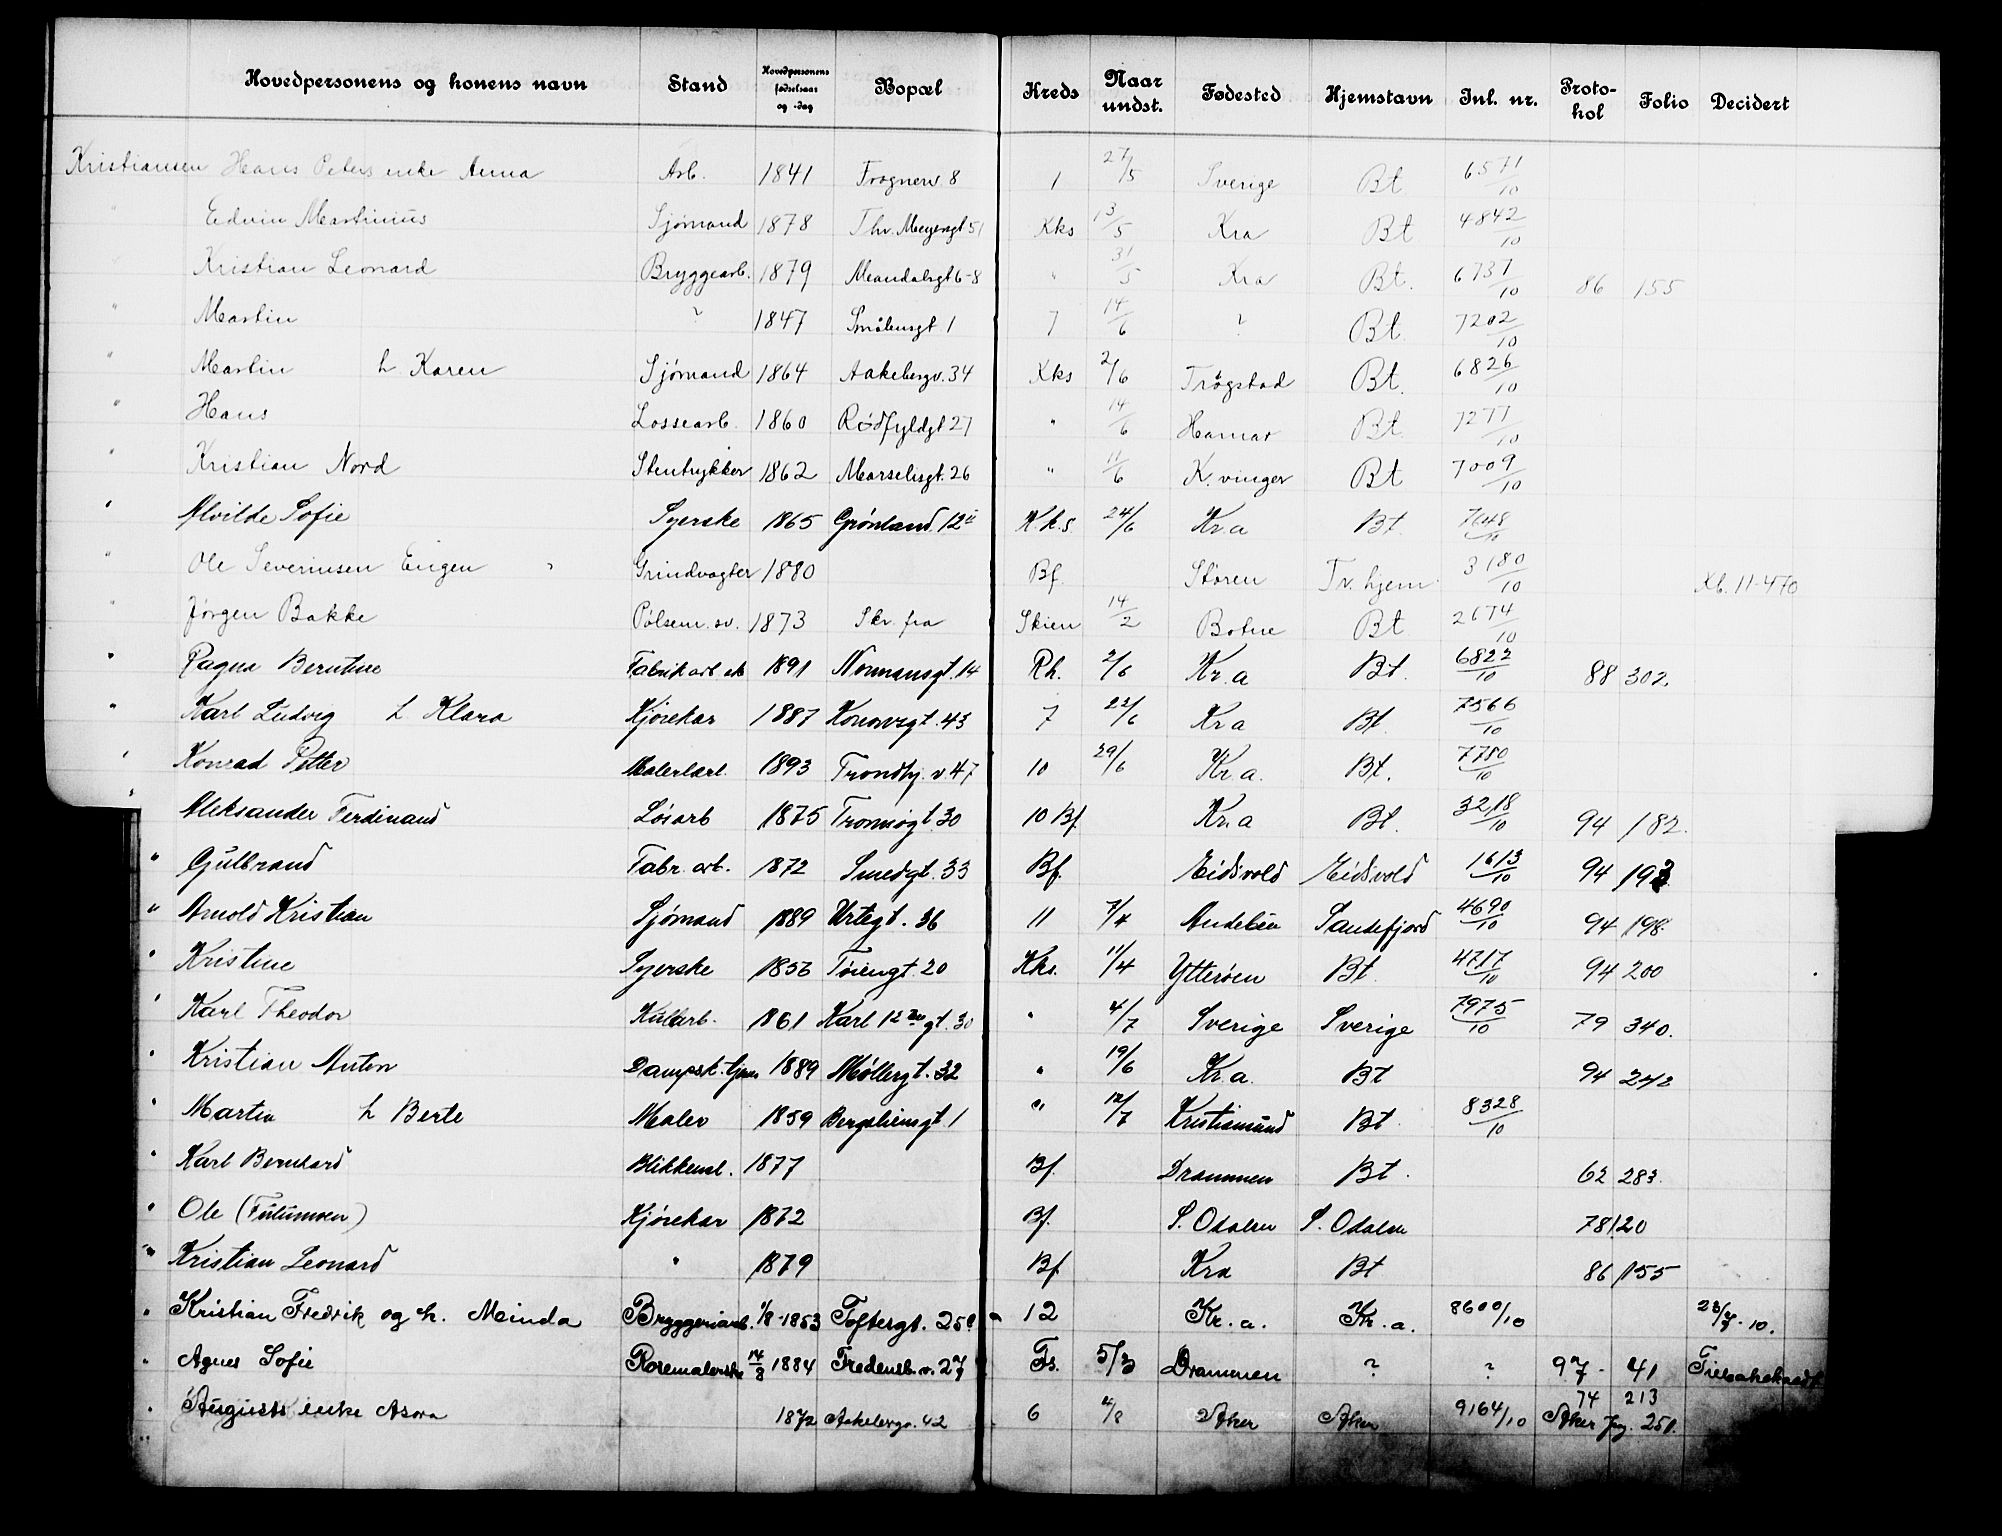 Hovedpersonens og konens navn Stand Hovedpersonens fødselsaar og -dag Bopæl Kreds Naar undst. Fødested Hjemstavn Inl. nr. Protokol Folio Decidert
Kristiansen Hans Peters enke Anna Arb. 1841 Frognerv. 8 1 27/5 Sverige Bt 6571/10
" Edvin Martinius Sjømand 1878 Thv. Meyersgt 51 Kks 13/5 Kra Bt 4842/10
Kristian Leonard Bryggearb. 1879 Mandalsgt 6-8 " 31/5 Kra Bt. 6737/10 86 155
" Martin ? 1847 Smålensgt 1 7 14/6 ? Bt. 7202/10
" Martin h Karen Sjømand 1864 Aakebergv. 34 Kks 2/6 Trøgstad Bt. 6826/10
" Hans Lossearb. 1860 Rødfyldgt 27 " 14/6 Hamar Bt. 7277/10
" Kristian Nord Stentrykker 1862 Marselisgt. 26 " 11/6 K.vinger Bt 7009/10
" Alvilde Sofie Syerske 1865 Grønland. 12 K.k.s. 24/6 Kr.a Bt. 7648/10
" Ole Severinsen Engen Grindvogter 1880 Bf. Støren Tv. hjem 3180/10 Kb. 11-470
" Jørgen Bakke Pølsem. sv. 1873 Skr. fra Skien 14/2 Botne Bt 2674/10
" Ragna Berntine Fabrik arb. 1891 Normansgt. 14 Rh. 2/6 Kr.a Bt. 6822/10 88 302.
" Karl Ludvig h. Klara Kjørekar 1887 Konowsgt. 43 7 22/6 Kr.a Bt. 7566/10
" Konrad Petter Malerlærl. 1893 Trondhj. v. 47 10 29/6 Kr.a. Bt. 7780/10
" Aleksander Ferdinand Løsarb 1875 Tromsøgt. 30 10 Bf. Kr.a Bt. 3218/10 94 182.
" Gulbrand Fabr. arb. 1872 Smedgt. 33 Bf. Eidsvold Eidsvold 1613/10 94 193
" Arnold Kristian Sjømand 1889 Urtegt. 36 11 7/4 Andebu Sandefjord 4690/10 94 198.
" Kristine Syerske 1856 Tøiengt. 20 Kks. 11/4 Ytterøen Bt. 4717/10 94 200
" Karl Theodor Kularb. 1861 Karl 12 gt. 30 " 4/7 Sverige Sverige 7975/10 79 340.
" Kristian Anton Dampsk. 1889 Møllergt. 32 " 19/6 Kr.a. Bt 94 242
" Martin h Berte Maler 1859 Bergsliensgt 1 " 12/7 Kristiansund Bt 8328/10
" Karl Bernhard Blikkensl. 1877 Bf. Drammen Bt. 62 283.
" Ole (Furumoen) Kjørekar 1872 Bf. S. Odalen S. Odalen 78 120
" Kristian Leonard " 1879 Bf. Kra Bt 86 155
" Kristian Fredrik og h. Minda Bryggeriarb. 1/8-1853 Toftergt. 25 12 Kr.a. Kr.a. 8600/10 23/7-10.
" Agnes Sofie Rosemalerske 14/8 1884 Fredensb. v. 27 Fs. 5/3 Drammen ? ? 97- 41
" Augusts enke Asora 1872 Aakebergv. 42 6 4/8 Aker Aker 9164/10 74 213
Aker 251.
"